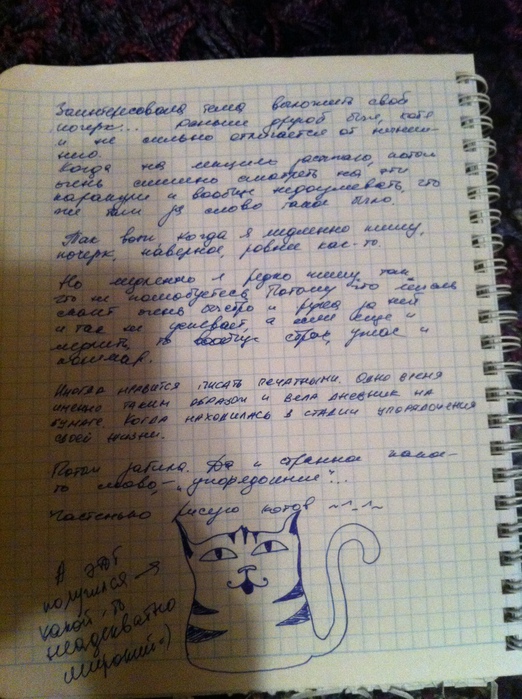 Заинтересовала тема выложить свой
почерк... Раньше другой был, хотя
и не сильно отличается от нынеш-
него.
Когда на лекциях засыпаю, потом
очень смешно смотреть на эти
каракули и вообще недоумевать, что
же там за слово такое было.
Так вот, когда я медленно пишу,
почерк, наверное, ровнее как-то.
Но медленно я редко пишу, так
что не полюбуетесь. Потому что мысль
скачет очень быстро и рука за ней
и так не успевает, а если еще и
медлить, то вообще страх, ужас и
кошмар.
Иногда нравится писать печатными. Одно время
именно таким образом и вела дневник на
бумаге. Когда находилась в стадии упорядочения
своей жизни.
Потом забила. Да и странное какое-
то слово, — "упорядочение"...
Частенько рисую котов ~^_^~
А этот →
получился
какой-то
неадекватно
широкий=)